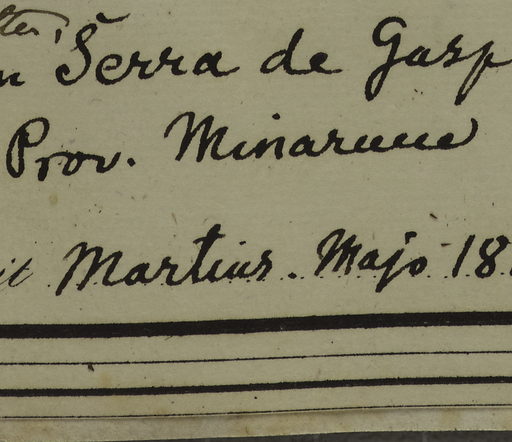 Serra de Gasp
Prov. Minarum
it Martius. Majo 18